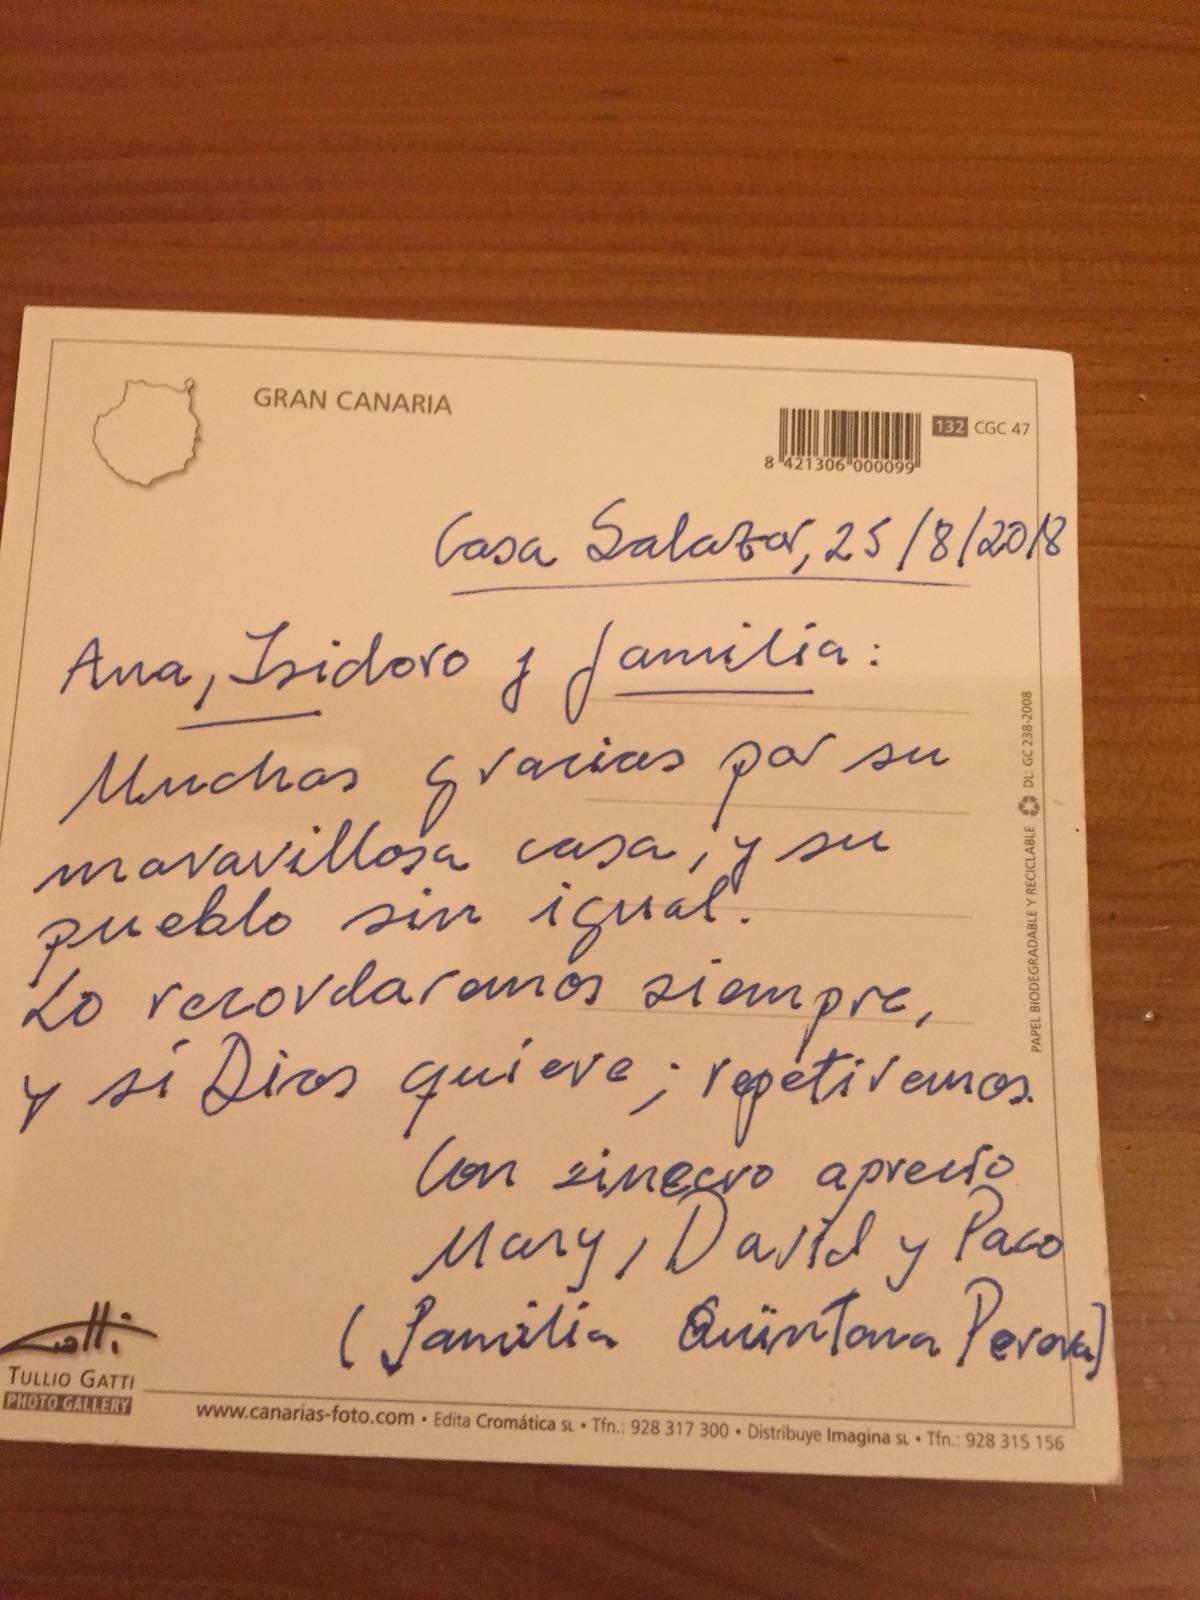 GRAN CANARIA
8 421306 000099
132 CGC 47
Casa Salazar, 25/8/2018
Ana, Isidoro y familia:
Muchas gracias por su
maravillosa casa, y su
pueblo sin igual.
Lo recordaremos siempre,
y si Dios quiere; repetiremos.
Con sincero aprecio
Mary, David y Paco
(Familia Quintana Perera)
PAPEL BIODEGRADABLE Y RECICLABLE DL: GC 238-2008
Gatti
TULLIO GATTI
PHOTO GALLERY
www.canarias-foto.com • Edita Cromática SL • Tfn.: 928 317 300 • Distribuye Imagina SL • Tfn.: 928 315 156